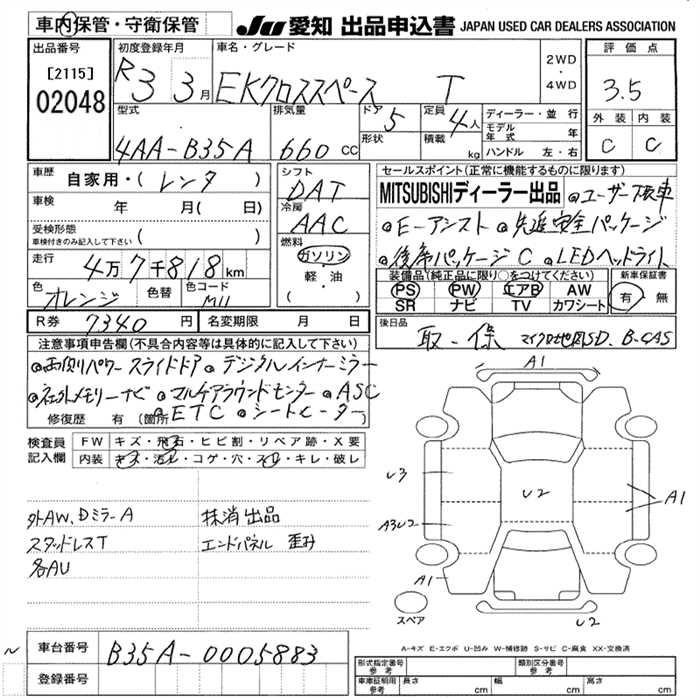 車内保管・守衛保管
JU 愛知 出品申込書 JAPAN USED CAR DEALERS ASSOCIATION
出品番号
[2115]
02048
初度登録年月
R3 3月
車名・グレード
EKクロススペース T
2WD
・
4WD
評価点
3.5
外装 内装
C C
型式
4AA-B35A
排気量
660 CC
ドア 5
形状
定員 4人
積載 kg
ディーラー・並行
モデル年式 年
ハンドル 左・右
車歴 自家用・( レンタ )
車検 年 月( 日)
受検形態
車検付きのみ記入して下さい ( )
走行 4万7千818km
色 オレンジ
色替
色コード M11
シフト DAT
冷房 AAC
燃料
ガソリン
・
軽・油
( )
セールスポイント(正常に機能するものに限ります)
MITSUBISHIディーラー出品 ◎ユーザー下取車
◎E-アシスト ◎先進安全パッケージ
◎後席パッケージ C ◎LEDヘッドライト
装備品(純正品に限り○をつけてください)
PS PW エアB AW
SR ナビ TV カワシート
新車保証書
有・無
R券 7340円
名変期限 月 日
後日品
取・保 マイクロ地図SD、B-CAS
注意事項申告欄(不具合内容等は具体的に記入して下さい)
◎両側パワースライドドア ◎デジタルインナーミラー
◎社外メモリーナビ ◎マルチアラウンドモニター ◎ASC
◎ETC ◎シートヒーター
修復歴 有 (箇所 )
検査員
記入欄
FW キズ・飛石・ヒビ割・リペア跡・X要
内装 キズ・汚れ・コゲ・穴・スレ・キレ・破レ
外AW、DミラーA
スタッドレスT
各AU
抹消出品
エンドパネル 歪み
A1
U3
U2
A1
A3U2
A1
スペア
U2
A-キズ E-エクボ U-凹み W-補修跡 S-サビ C-腐食 XX-交換済
車台番号 B35A-0005883
登録番号
形式指定番号
参考
類別区分番号
参考
車庫証明用
参考
長さ cm
幅 cm
高さ cm